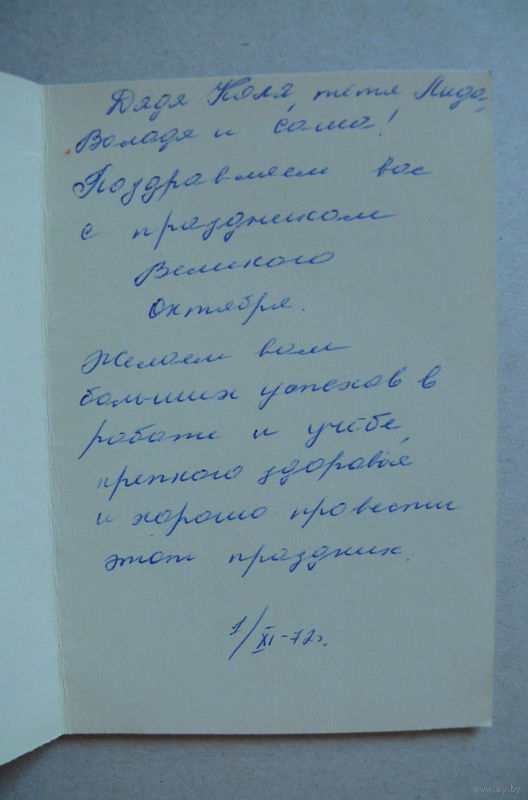 Дядя Коля тётя Лида,
Володя и Саша!
Поздравляем вас
с праздником
Великого
Октября.
Желаем вам
больших успехов в
работе и учёбе,
крепкого здоровья
и хорошо провести
этот праздник.
1/XI-72г.
www.ay.by